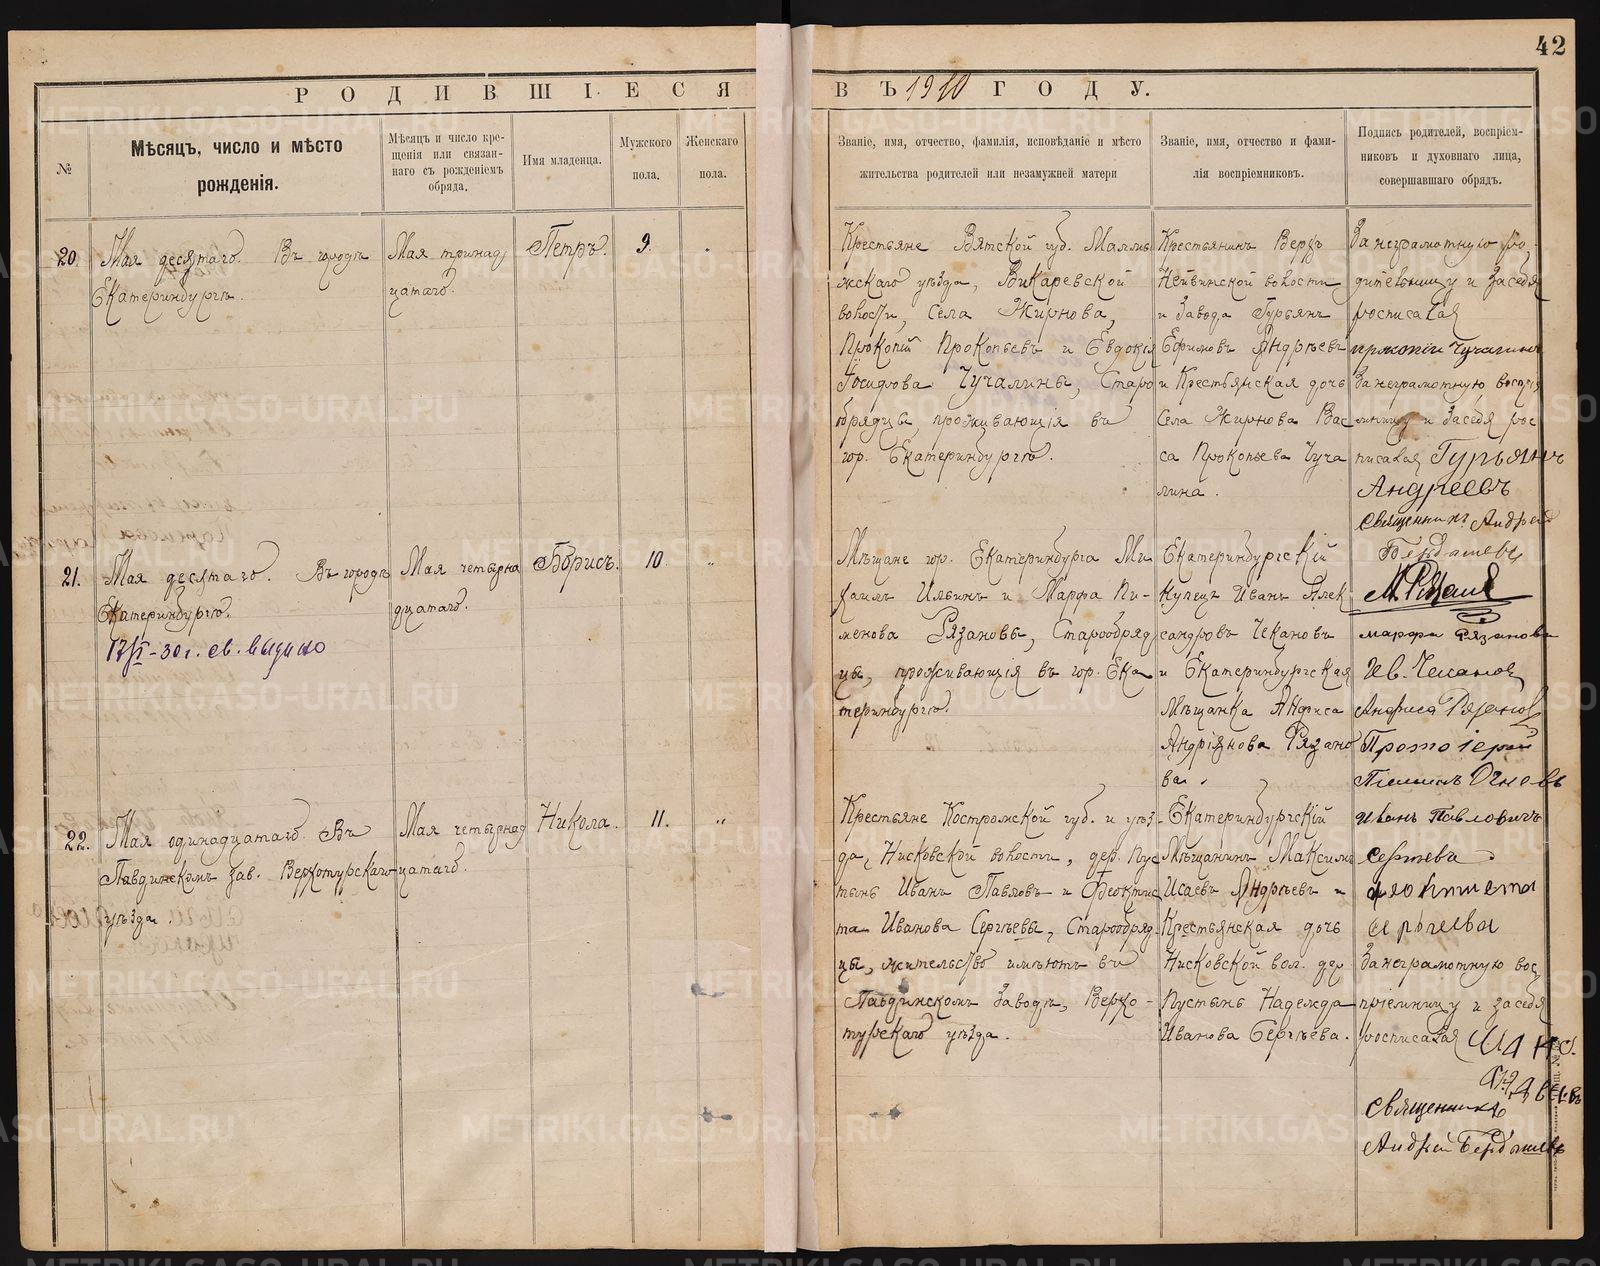 42
РОДИВШІЕСЯ ВЪ 1910 ГОДУ.
№
Мѣсяцъ, число и мѣсто
рожденія.
Мѣсяцъ и число кре-
щенія или связан-
наго съ рожденіемъ
обряда.
Имя младенца.
Мужского
пола.
Женскаго
пола.
Званіе, имя, отчество, фамилія, исповѣданіе и мѣсто
жительства родителей или незамужней матери
Званіе, имя, отчество и фами-
лія воспріемниковъ.
Подпись родителей, воспріем-
никовъ и духовнаго лица,
совершавшаго обрядъ.
20.
Мая десятаго. Въ городѣ
Екатеринбургѣ.
Мая тринад
цатаго.
Петръ.
9.
Крестьяне Вятской губ. Малмы
жскаго уѣзда, Викаревской
волости, Села Жирнова,
Прокопій Прокопьевъ и Евдокія
Іосифова Чучалины, Старо
обрядцы, проживающія въ
гор. Екатеринбургѣ.
Крестьянинъ Верхъ
Нейвинской волости
и Завода Гурьянъ
Ефимовъ Андреевъ
и Крестьянская дочь
Села Жирнова Вас
са Прокопьева Чуча
лина.
За неграмотную ро-
дительницу и за себя
росписался
прокопіи Чучалинъ
За неграмотную воспріе
мницу и за себя рос
писался Гурьянъ
Андреевъ
Священникъ Андрей
Бердышевъ
21.
Мая десятаго. Въ городѣ
Екатеринбургѣ.
17/VI-30г. св. выдано
Мая четырна
дцатаго.
Борисъ.
10.
Мѣщане гор. Екатеринбурга Ми
хаилъ Ильинъ и Марфа Пи-
менова Рязановы, Старообряд
цы, проживающія въ гор. Ека
теринбургѣ.
Екатеринбургскій
Купецъ Иванъ Алек
сандровъ Чекановъ
и Екатеринбургская
Мѣщанка Анфиса
Андріянова Рязано
ва.
М. Рязановъ
марфа Рязанова
Ив. Чекановъ
Анфиса Рязанова
Протоіерей
Огневъ
22.
Мая одинадцатаго Въ
Павдинскомъ зав. Верхотурскаго
уѣзда.
Мая четырнад
цатаго.
Никола.
11.
Крестьяне Костромской губ. и уѣз-
да, Нисковской волости, дер. Пус
тынь Иванъ Павловъ и Феоктис
та Иванова Сергѣевы, Старообряд-
цы, жительство имѣютъ въ
Павдинскомъ Заводѣ, Верхо-
турскаго уѣзда.
Екатеринбургскій
Мѣщанинъ Максимъ
Исаевъ Андреевъ и
Крестьянская дочь
Нисковской вол. дер.
Пустынь Надежда
Иванова Сергѣева.
Иванъ Павловичъ
Сергѣева
За неграмотную вос
пріемницу и за себя
росписался
Священникъ
Андрей Бердышевъ
METRIKI.GASO-URAL.RU